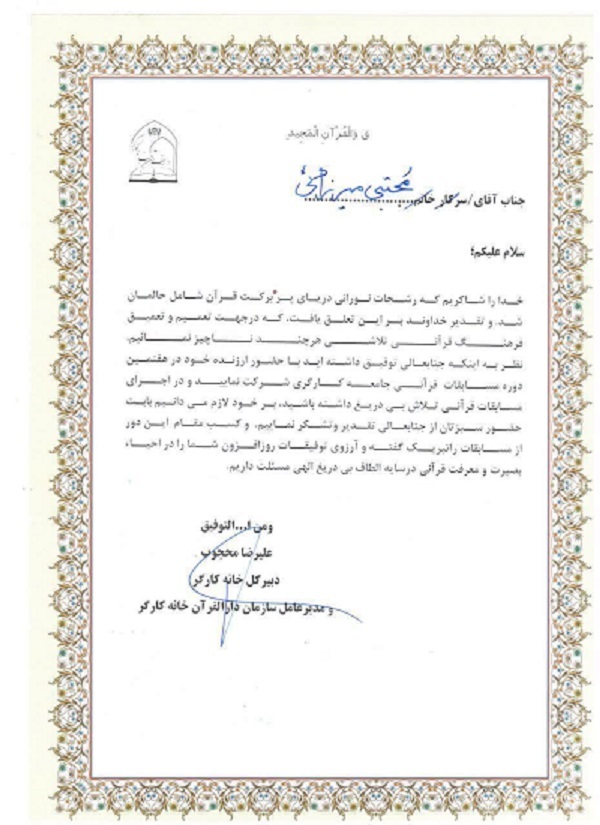 ق وَالْقُرْآنِ الْمَجِيدِ
جناب آقای/سرکار خانم مجتبی میرزاجانی
سلام علیکم؛
خدا را شاکریم که رشحات نورانی دریای پر برکت قرآن شامل حالمان
شد. و تقدیر خداوند بر این تعلق یافت، که درجهت تعمیم و تعمیق
فرهنگ قرآنی تلاشی هرچند ناچیز نمائیم.
نظر به اینکه جنابعالی توفیق داشته اید با حضور ارزنده خود در هفتمین
دوره مسابقات قرآنی جامعه کارگری شرکت نمایید و در اجرای
مسابقات قرآنی تلاش بی دریغ داشته باشید، بر خود لازم می دانیم بابت
حضور سبزتان از جنابعالی تقدیر وتشکر نماییم. و کسب مقام این دور
از مسابقات راتبریک گفته و آرزوی توفیقات روزافزون شما را در احیاء
بصیرت و معرفت قرآنی درسایه الطاف بی دریغ الهی مسئلت داریم.
ومن ا...التوفیق
علیرضا محجوب
دبیرکل خانه کارگر
و مدیرعامل سازمان دارالقرآن خانه کارگر